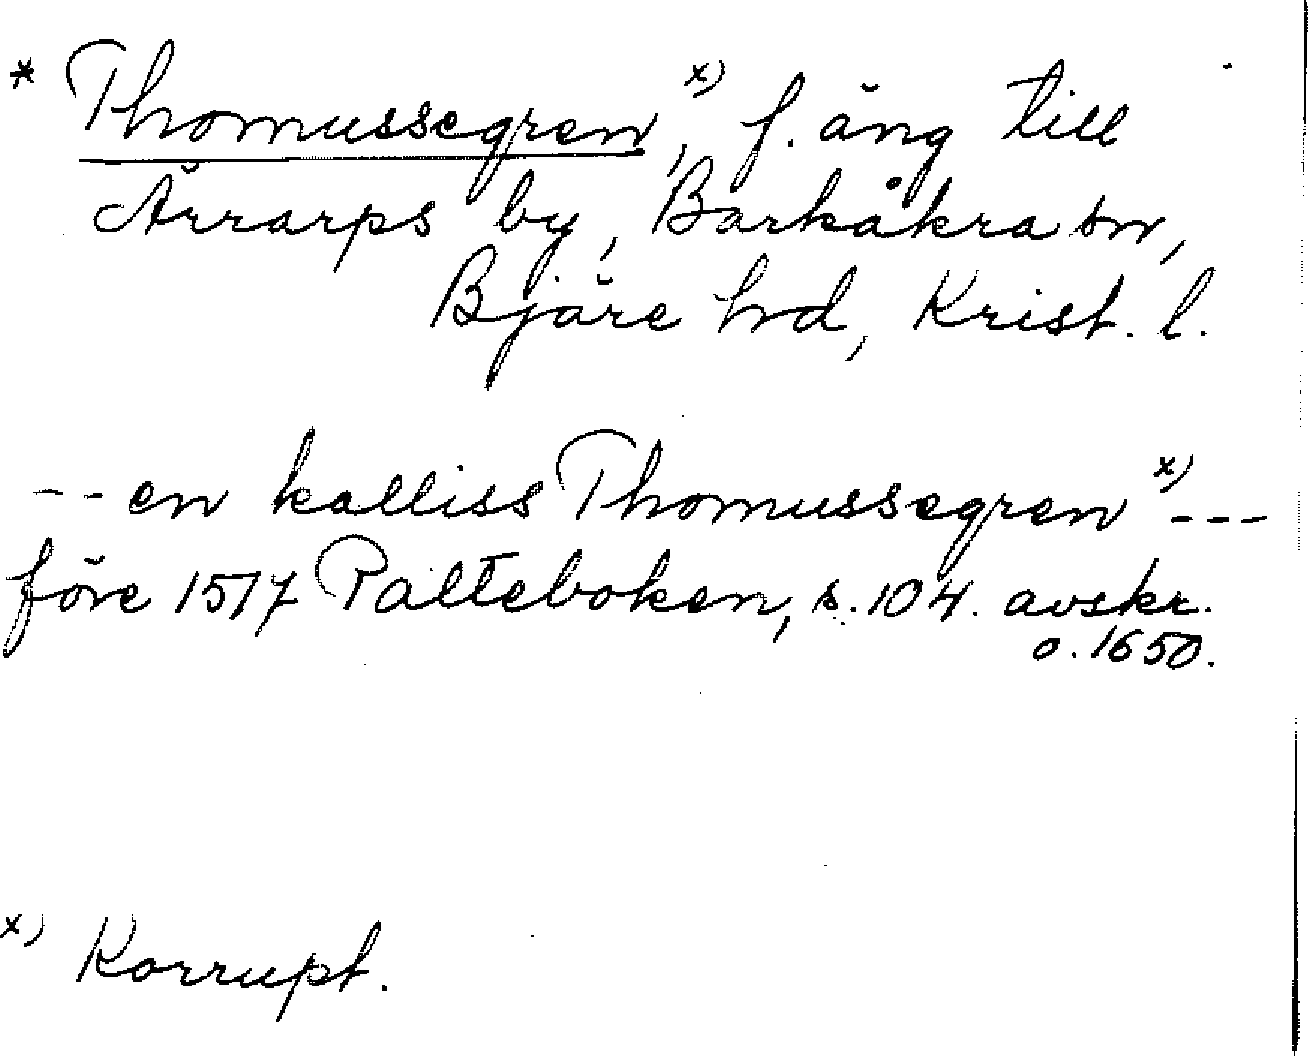 * Thomussegren,ˣ⁾ f. äng till
Ärrarps by, Barkåkra sn,
Bjäre hd, Krist. l.
-- en kalliss Thomussegren ˣ⁾ ---
före 1517 Palteboken, s. 104. avskr.
o. 1650.
ˣ⁾ Korrupt.